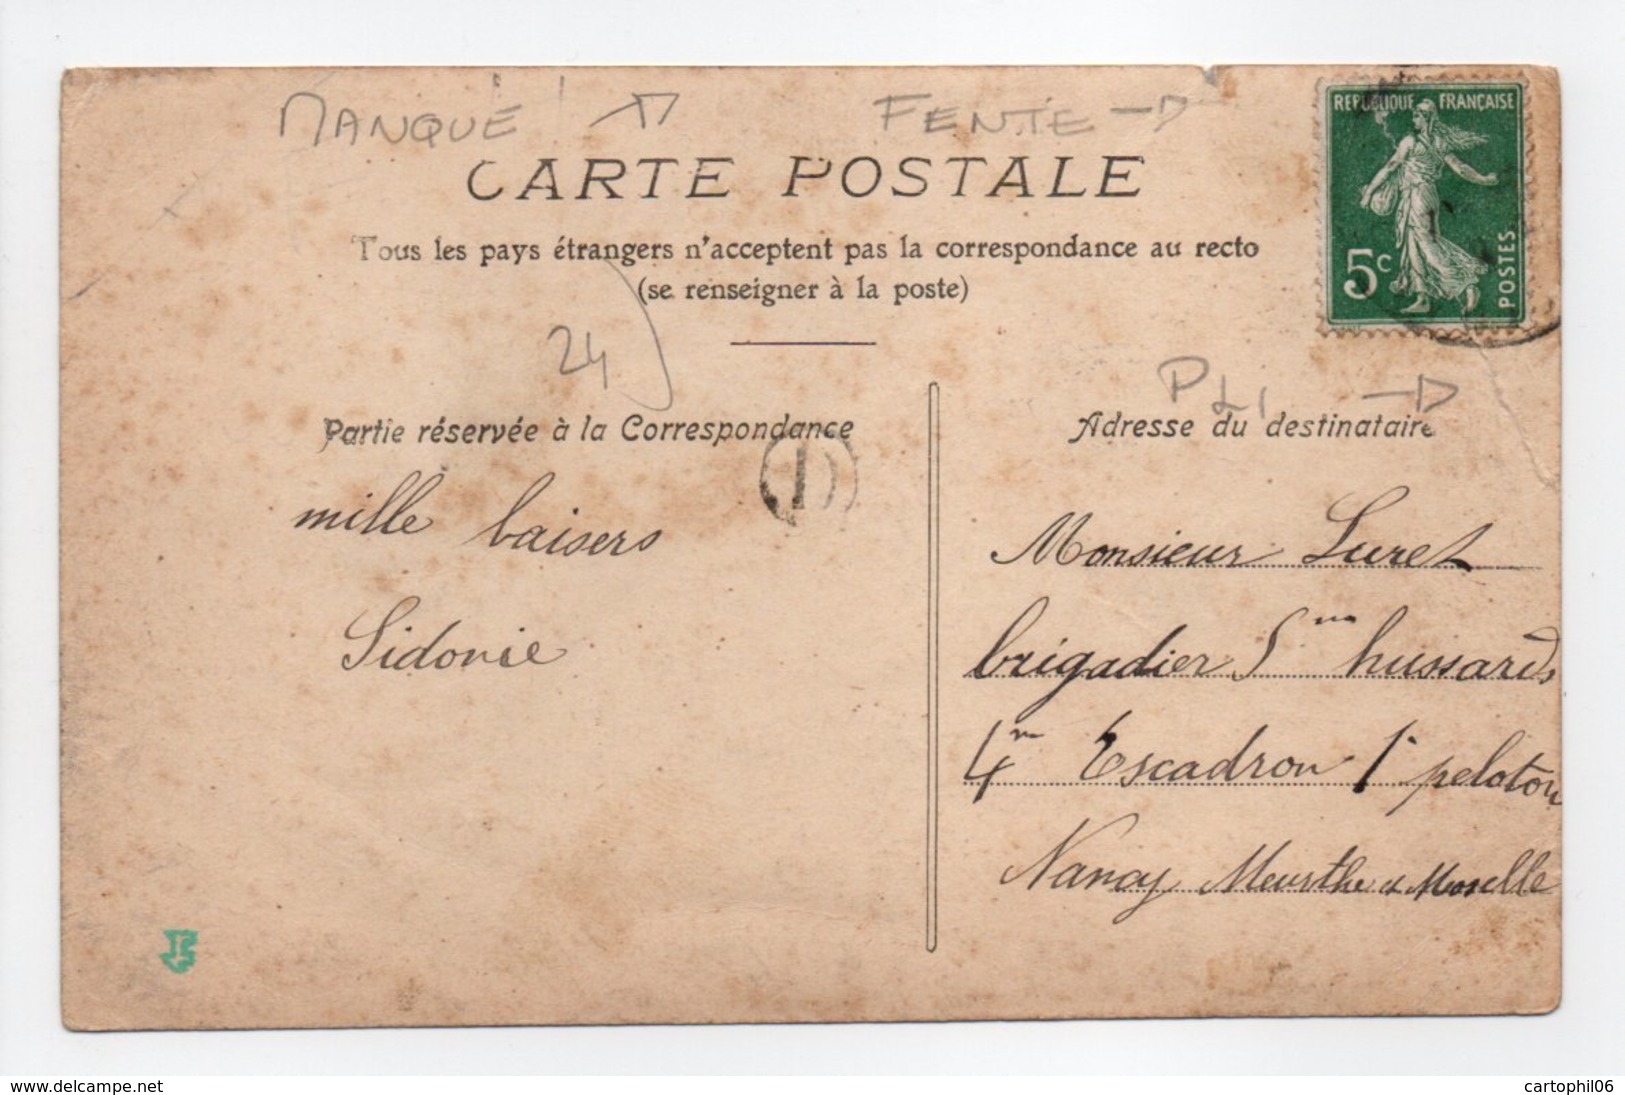 MANQUE !
FENTE
REPUBLIQUE FRANÇAISE
5c
POSTES
CARTE POSTALE
Tous les pays étrangers n'acceptent pas la correspondance au recto
(se renseigner à la poste)
24
PLI
Partie réservée à la Correspondance
mille baisers
Sidonie
Adresse du destinataire
Monsieur Luret
brigadier 5me hussards
4me Escadron 1r peloton
Nancy Meurthe et Moselle
www.delcampe.net
cartophil06